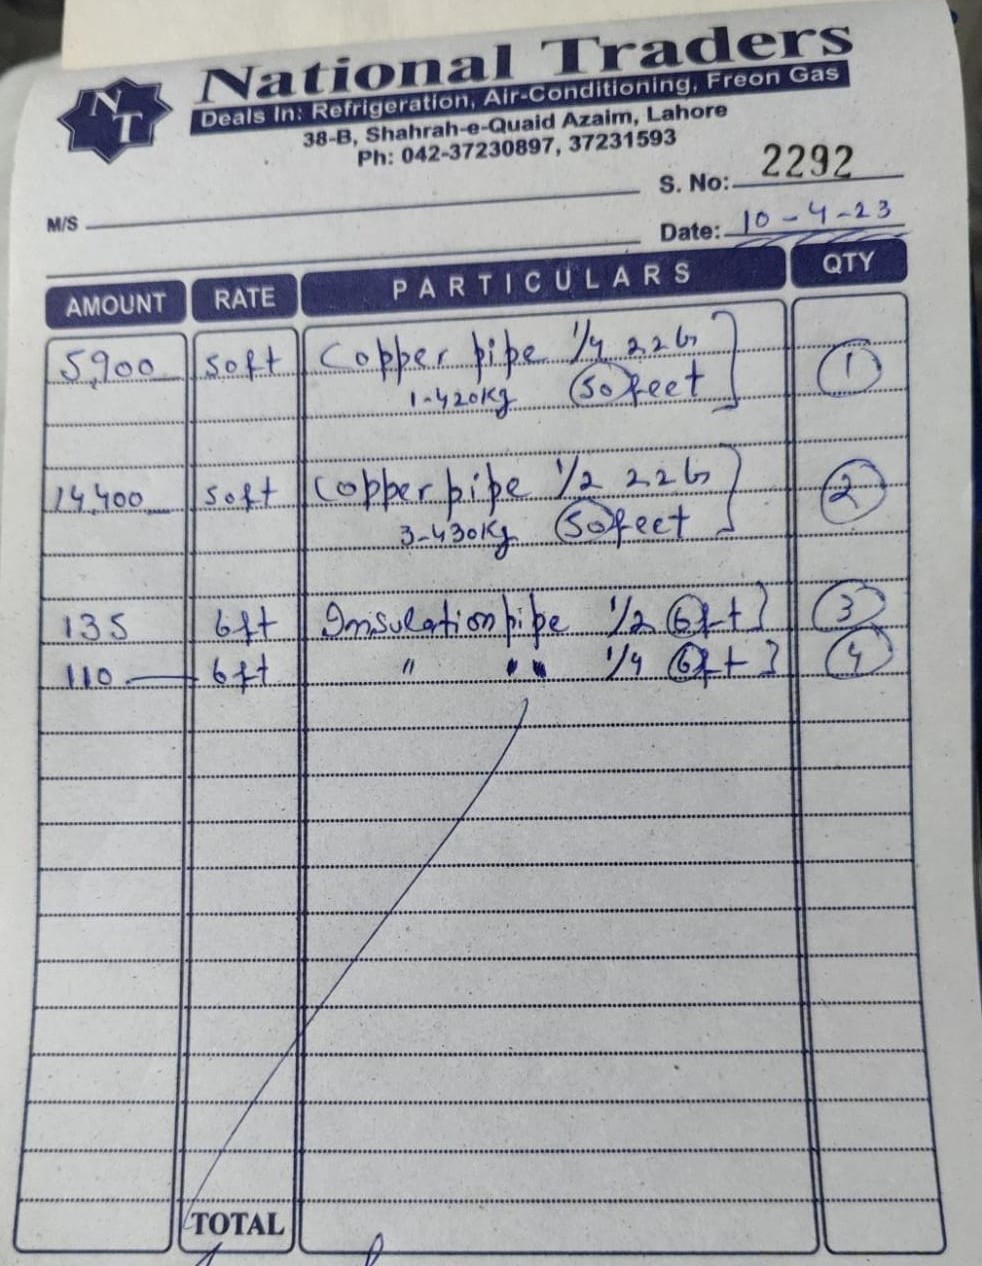 NT
National Traders
Deals In: Refrigeration, Air-Conditioning, Freon Gas
38-B, Shahrah-e-Quaid Azaim, Lahore
Ph: 042-37230897, 37231593
S. No: 2292
M/S
Date: 10-4-23
AMOUNT RATE PARTICULARS QTY
5,900 50ft Copper pipe 1/4 22G 1
1-420Kg 50feet
14,400 50ft Copper pipe 1/2 22G 2
3-430Kg 50feet
135 6ft Insulation pipe 1/2 6ft 3
110 6ft " " " 1/4 6ft 4
TOTAL